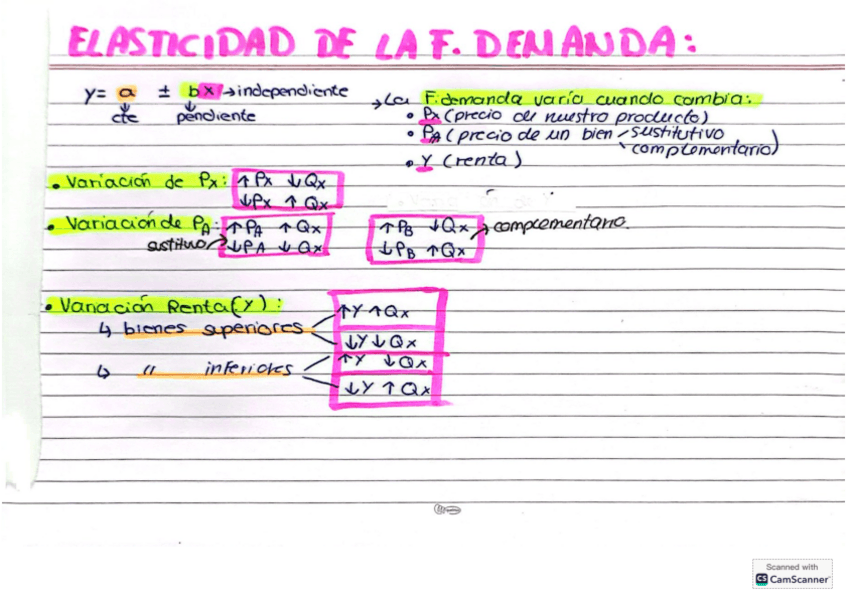 ELASTICIDAD DE LA F. DEMANDA:
y= a ± bx →independiente
cte pendiente
→La F.demanda varía cuando cambia:
• Px (precio de nuestro producto)
• PA (precio de un bien sustitutivo
complementario)
• Y (renta)
• Variación de Px: ↑Px ↓Qx
↓Px ↑Qx
• Variación de PA: ↑PA ↑Qx ↑PB ↓Qx → complementario.
sustituvo ↓PA ↓Qx ↓PB ↑Qx
• Variación Renta(Y):
↳ bienes superiores ↑Y ↑Qx
↓Y ↓Qx
↳ " inferiores ↑Y ↓Qx
↓Y ↑Qx
Scanned with
CS CamScanner